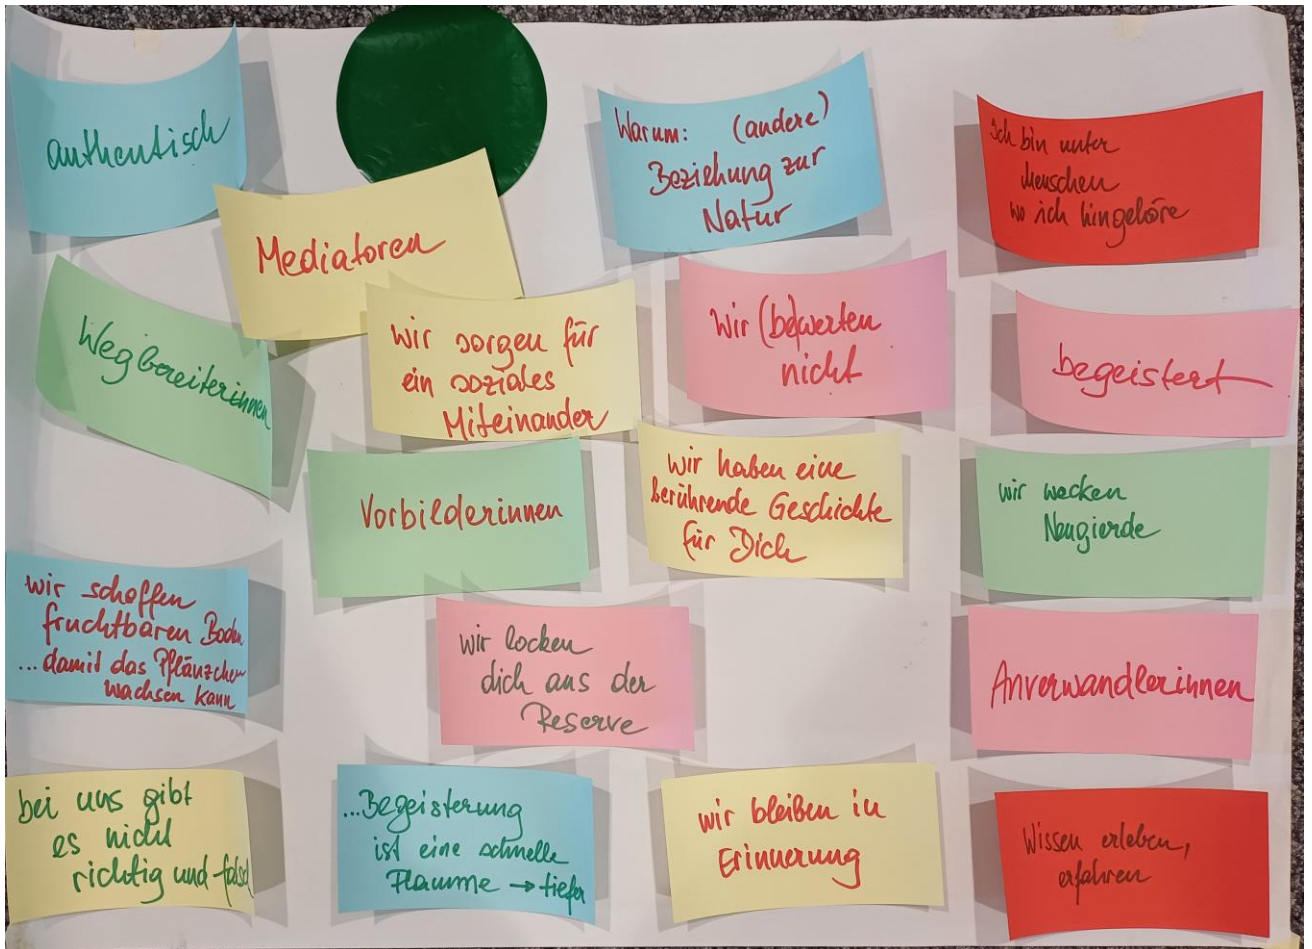 authentisch
Warum: (andere)
Beziehung zur
Natur
Ich bin unter
Menschen
wo ich hingehöre
Mediatoren
Wegbereiterinnen
wir sorgen für
ein soziales
Miteinander
Wir (be)werten
nicht
begeistert
Vorbilderinnen
wir haben eine
berührende Geschichte
für Dich
wir wecken
Neugierde
wir schaffen
fruchtbaren Boden
...damit das Pflänzchen
wachsen kann
wir locken
dich aus der
Reserve
Anverwandlerinnen
bei uns gibt
es nicht
richtig und falsch
...Begeisterung
ist eine schnelle
Flamme → tiefer
wir bleiben in
Erinnerung
Wissen erleben,
erfahren